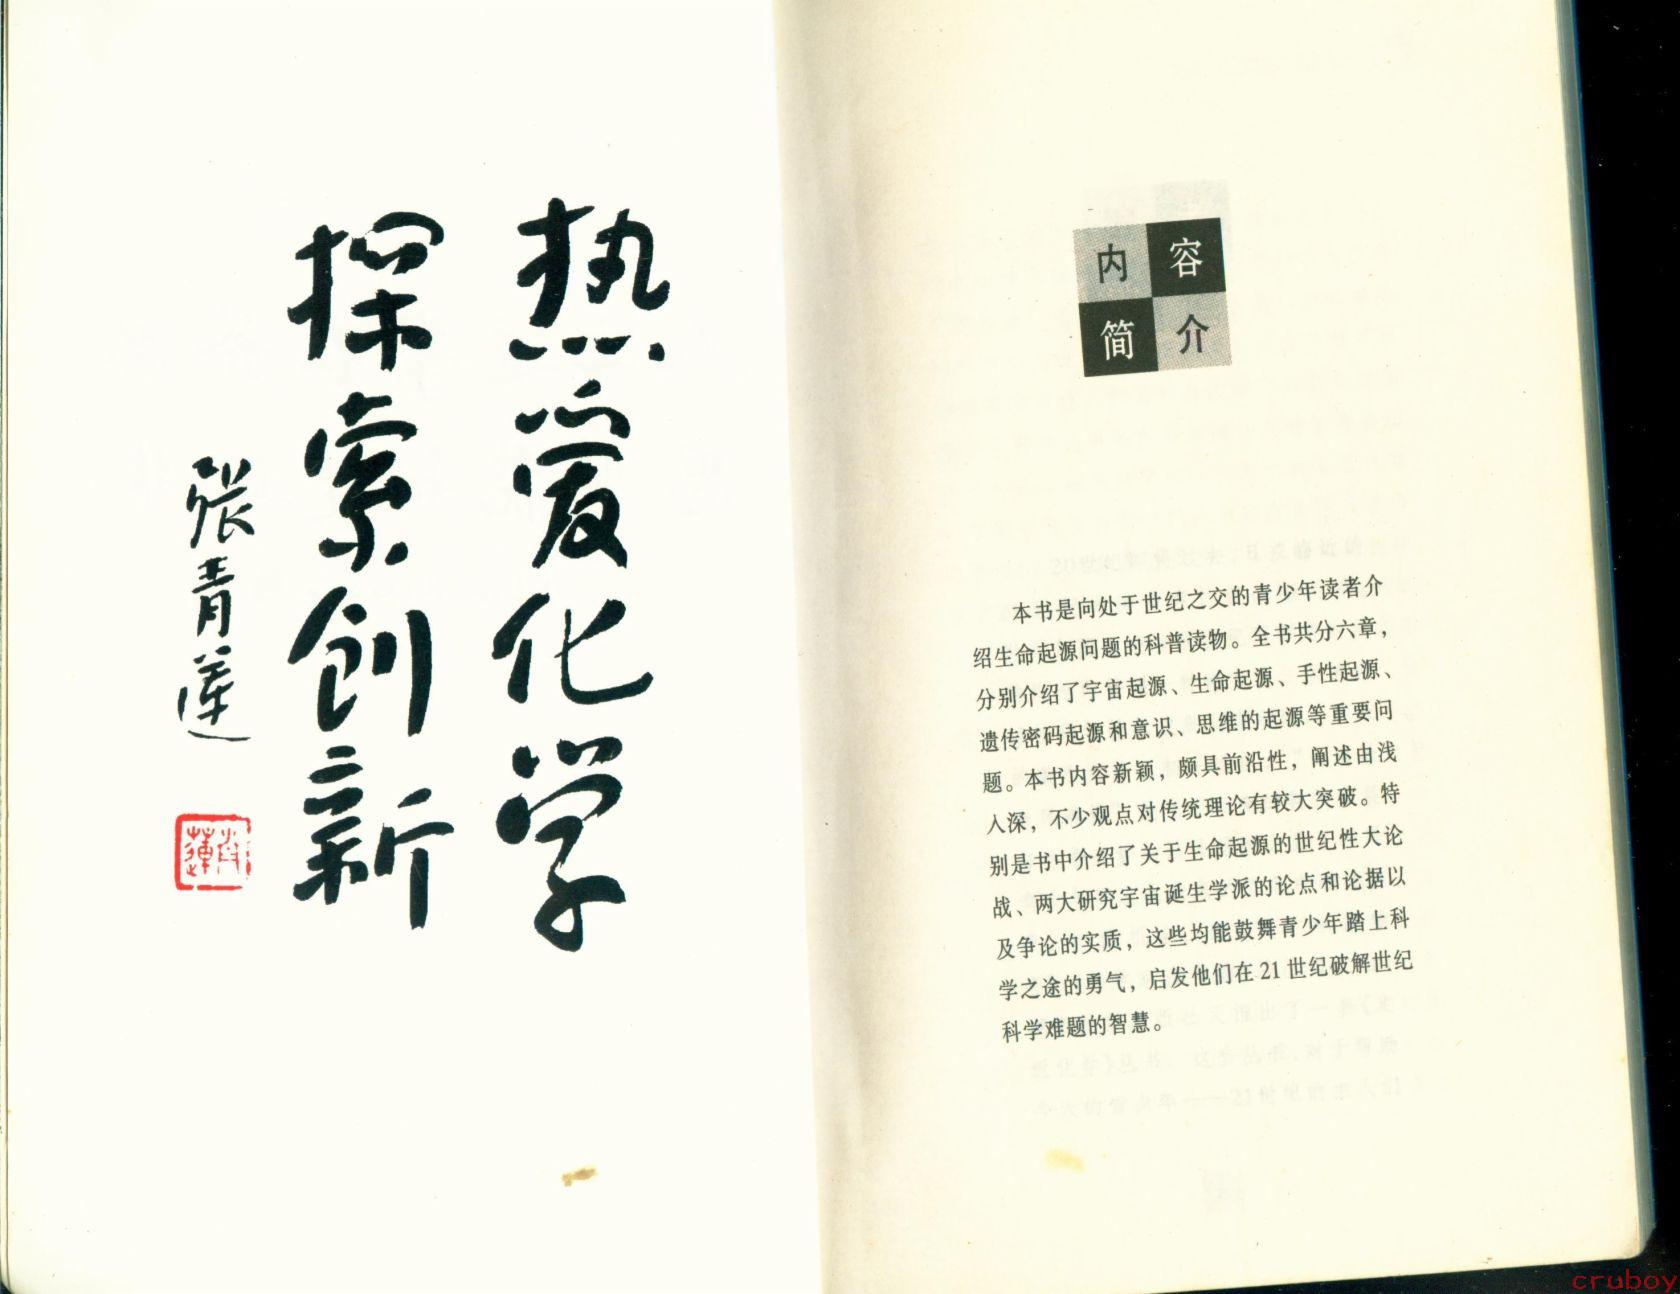 热爱化学
探索创新
张青莲
青莲
内容
简介
本书是向处于世纪之交的青少年读者介
绍生命起源问题的科普读物。全书共分六章，
分别介绍了宇宙起源、生命起源、手性起源、
遗传密码起源和意识、思维的起源等重要问
题。本书内容新颖，颇具前沿性，阐述由浅
人深，不少观点对传统理论有较大突破。特
别是书中介绍了关于生命起源的世纪性大论
战、两大研究宇宙诞生学派的论点和论据以
及争论的实质，这些均能鼓舞青少年踏上科
学之途的勇气，启发他们在21世纪破解世纪
科学难题的智慧。
cruboy